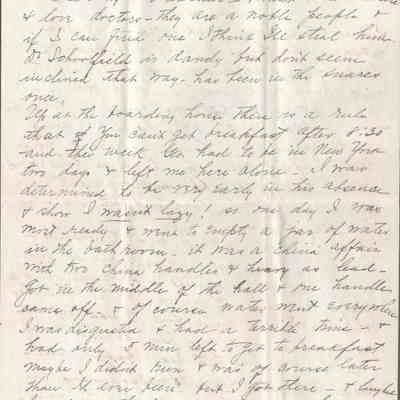 & love doctors - they are a noble people &
if I can find one I think I'll steal him.
Dr Schoolfield is dandy but don't seem
inclined that way - has been in the snares
once.
Up at the boarding house there is a rule
that if you can't get breakfast after 8:30
and this week had to be in New York
two days & left me here alone - I was
determined to be very early in his absence
& show I wasn't lazy! so one day I was
most ready & went to empty a jar of water
in the bath room - it was a china affair
with two china handles & heavy as lead -
Got in the middle of the hall & one handle
came off - & of course water went everywhere
I was disgusted & had a terrible time - &
had only 5 min left to get to breakfast
maybe I didn't run & was of course later
than I'd ever been but I got there - & laughed